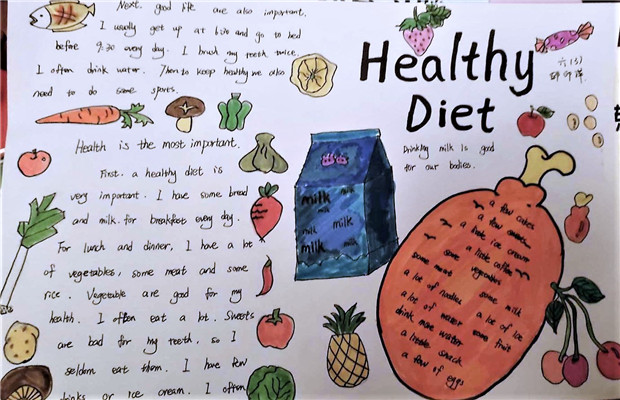 Next. good life are also important.
I usually get up at and go to bed
before 9:30 every day. I brush my teeth twice.
I often drink water. Then to keep healthy we also
need to do some sports.
Health is the most important.
First. a healthy diet is
very important. I have some bread
and milk for breakfast every day.
For lunch and dinner, I have a lot
of vegetables, some meat and some
rice. Vegetable are good for my
health. I often eat a lot. Sweets
are bad for my teeth, so I
seldom eat them. I have few
drinks or ice cream. I often
Healthy
Diet
六(3)
Drinking milk is good
for our bodies.
milk
milk
milk
milk
milk
milk
milk
a few cakes
a few
a little ice cream
a little coffee
some vegetables
some meat
a lot of noodles
some milk
a lot of water
a lot of rice
drink more water
some fruit
a little snack
a few of eggs